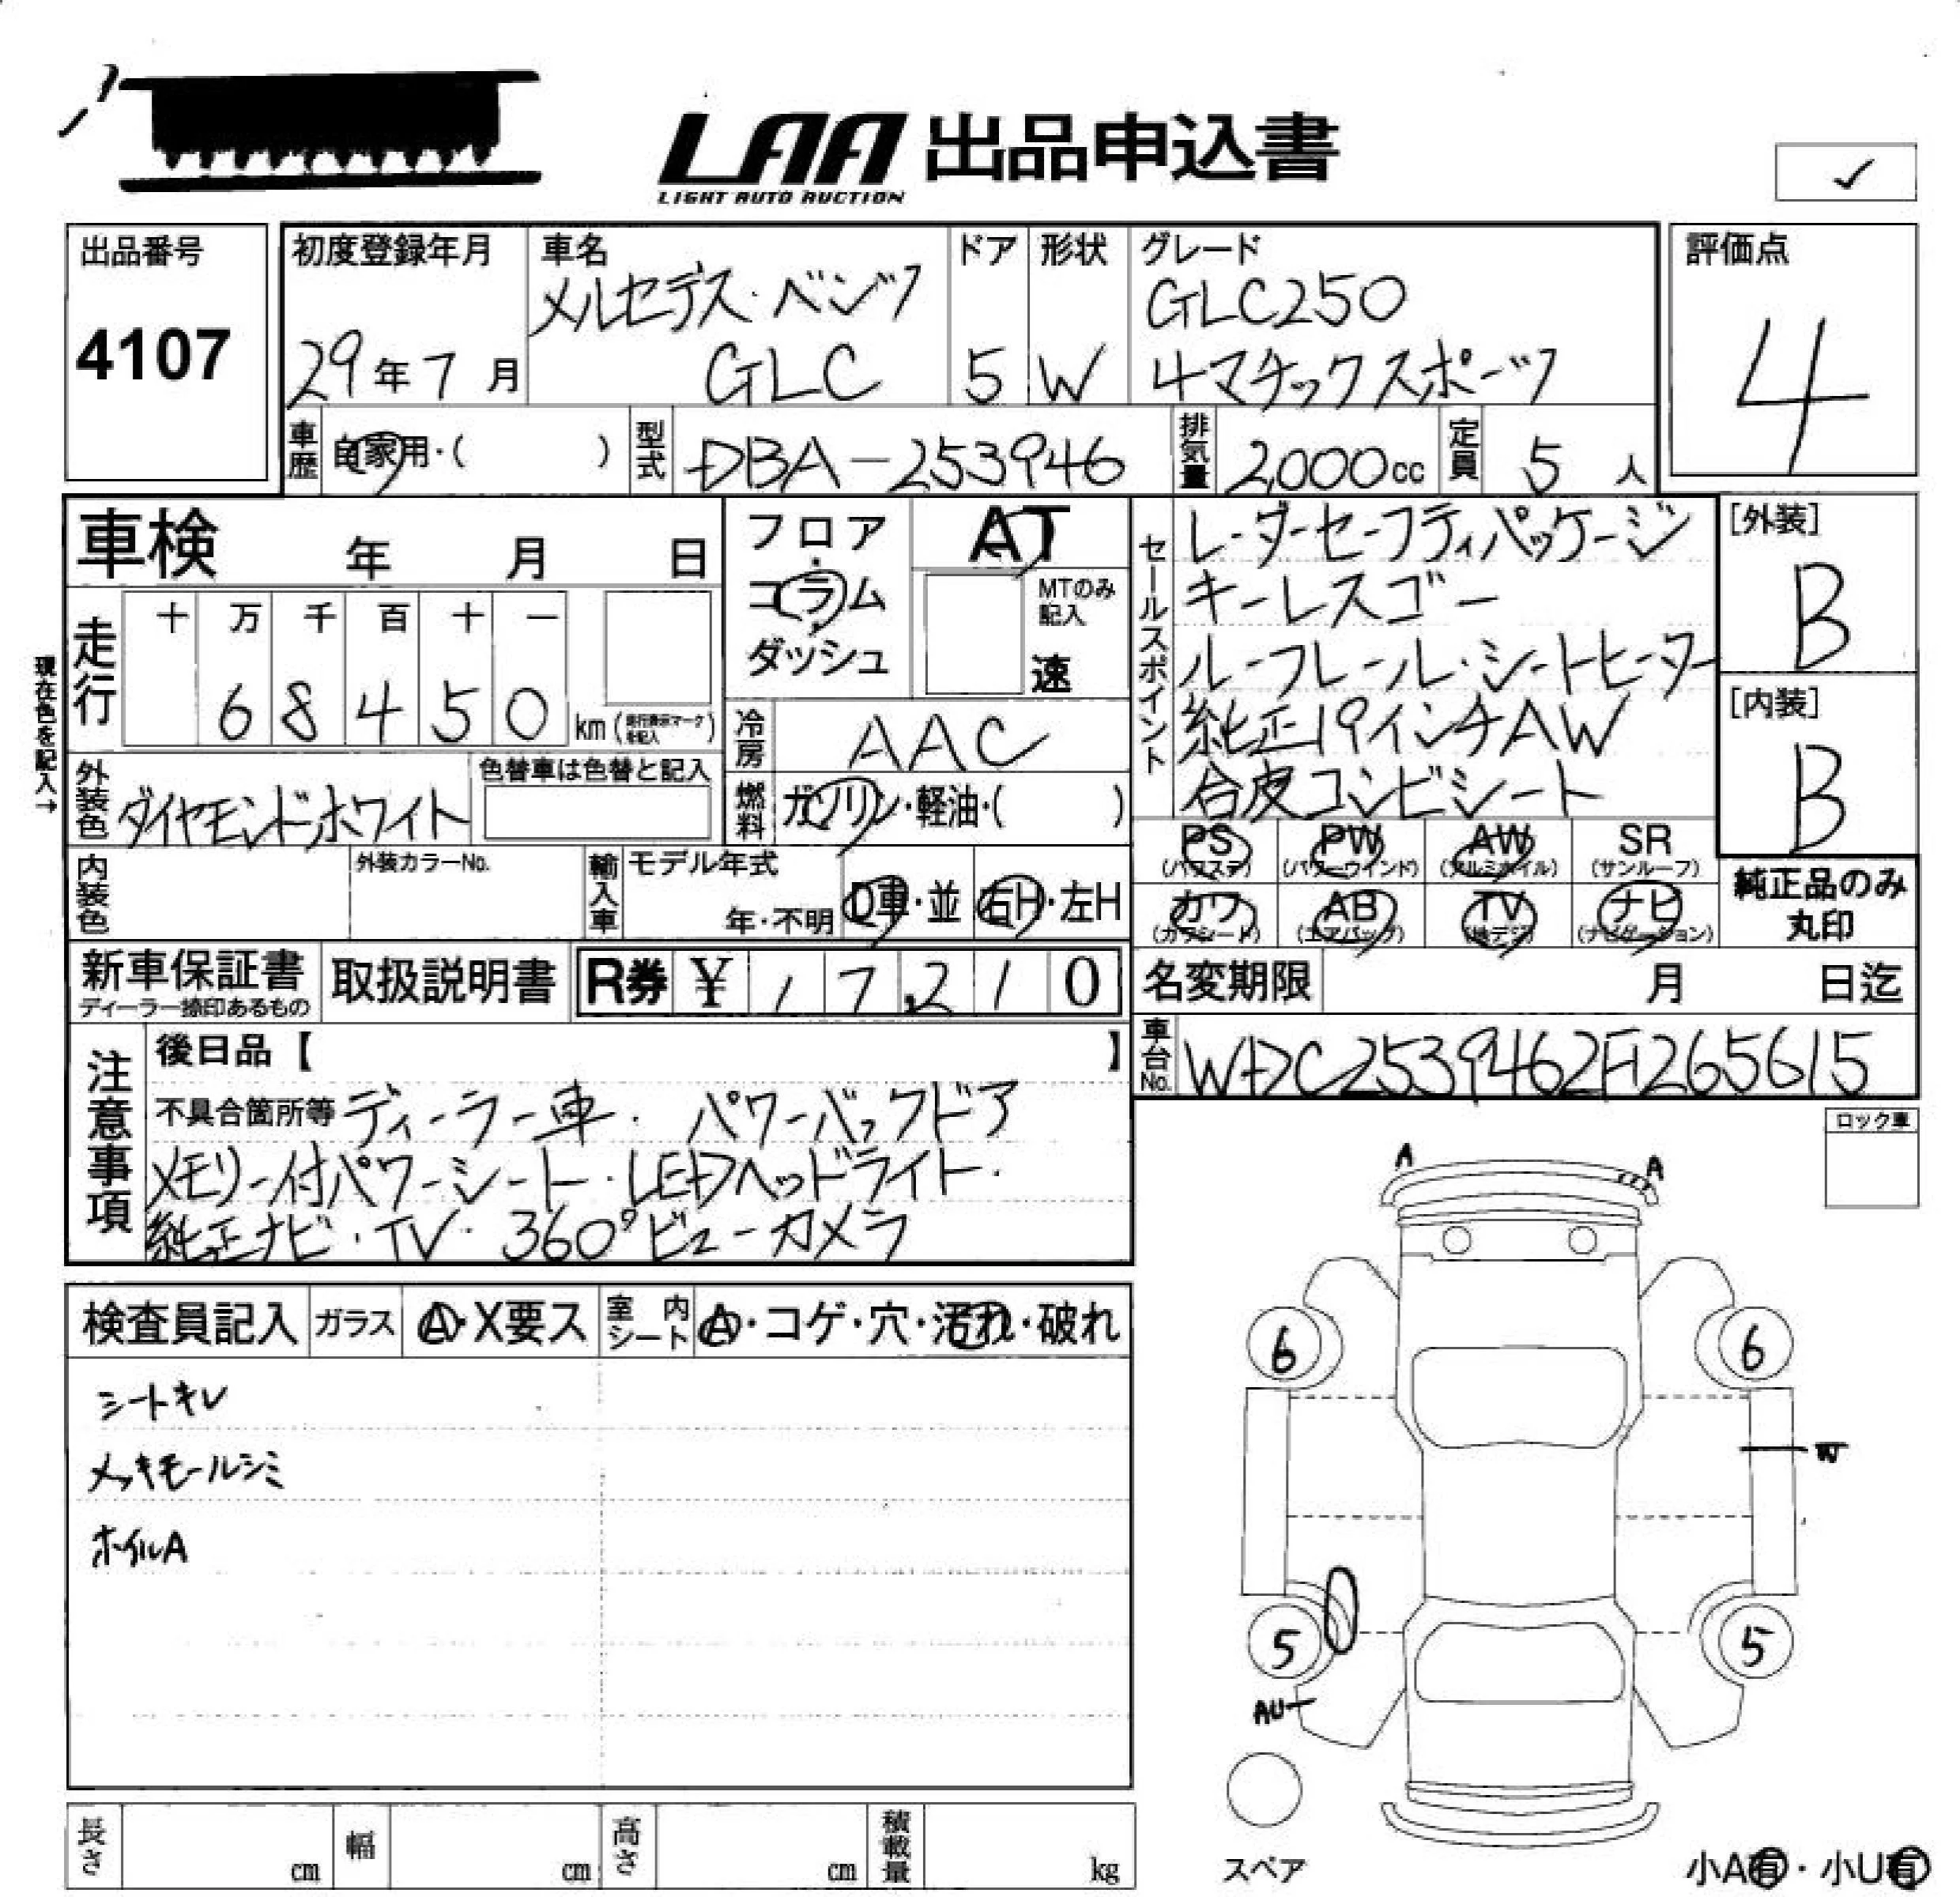 LAA 出品申込書
LIGHT AUTO AUCTION
✓
出品番号
4107
初度登録年月
29年7月
車名
メルセデス・ベンツ
GLC
ドア
5
形状
W
グレード
GLC250
4マチックスポーツ
評価点
4
車歴
自家用・( )
型式
DBA-253946
排気量
2,000cc
定員
5人
車検 年 月 日
現在色を記入→
走行
十 万 千 百 十 一
6 8 4 5 0 km(走行表示マークを記入)
フロア・コラム・ダッシュ
AT
MTのみ記入
速
冷房
AAC
燃料
ガソリン・軽油・( )
外装色
ダイヤモンドホワイト
色替車は色替と記入
内装色
外装カラーNo.
輸入車
モデル年式
年・不明
D車・並
右H・左H
セールスポイント
レーダーセーフティパッケージ
キーレスゴー
ルーフレール・シートヒーター
純正19インチAW
合皮コンビシート
[外装]
B
[内装]
B
PS
(パワステ)
PW
(パワーウインド)
AW
(アルミホイル)
SR
(サンルーフ)
カワ
(カワシート)
AB
(エアバッグ)
TV
(地デジ)
ナビ
(ナビゲーション)
純正品のみ
丸印
新車保証書
ディーラー捺印あるもの
取扱説明書
R券 ¥ 17,210
名変期限 月 日迄
車台No.
WDC2539462F265615
注意事項
後日品【 】
不具合箇所等 ディーラー車・パワーバックドア
メモリー付パワーシート・LEDヘッドライト・
純正ナビ・TV・360°ビューカメラ
ロック車
検査員記入
ガラス
A・X要ス
室内シート
A・コゲ・穴・汚れ・破れ
シートキレ
メッキモールシミ
ホイルA
A
A
6
6
W
5
5
AU
スペア
小A有・小U有
長さ cm
幅 cm
高さ cm
積載量 kg